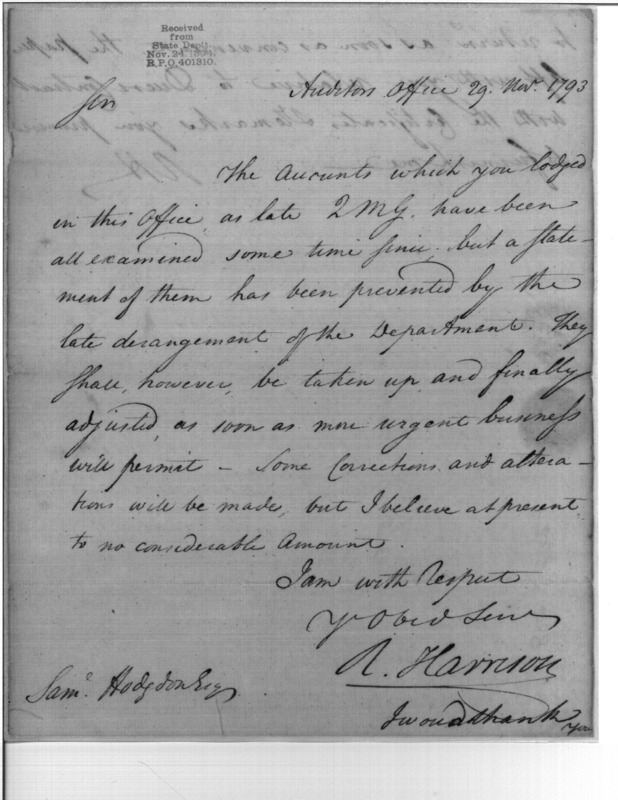 Received
from
State Dept.
Nov. 24, 1894,
R.P.O. 401310.
Auditors Office 29. Novr. 1793
Sir
The Accounts which you lodged
in this Office, as late 2 M G. have been
all examined some time since; but a state-
ment of them has been prevented by the
late derangement of the Department. They
shall, however, be taken up and finally
adjusted, as soon as more urgent business
will permit - Some Corrections and altera-
tions will be made, but I believe at present,
to no considerable Amount.
I am with Respect
Yr Obed Serv
R. Harrison
Saml. Hodgdon Esqr.
I woud thank
you